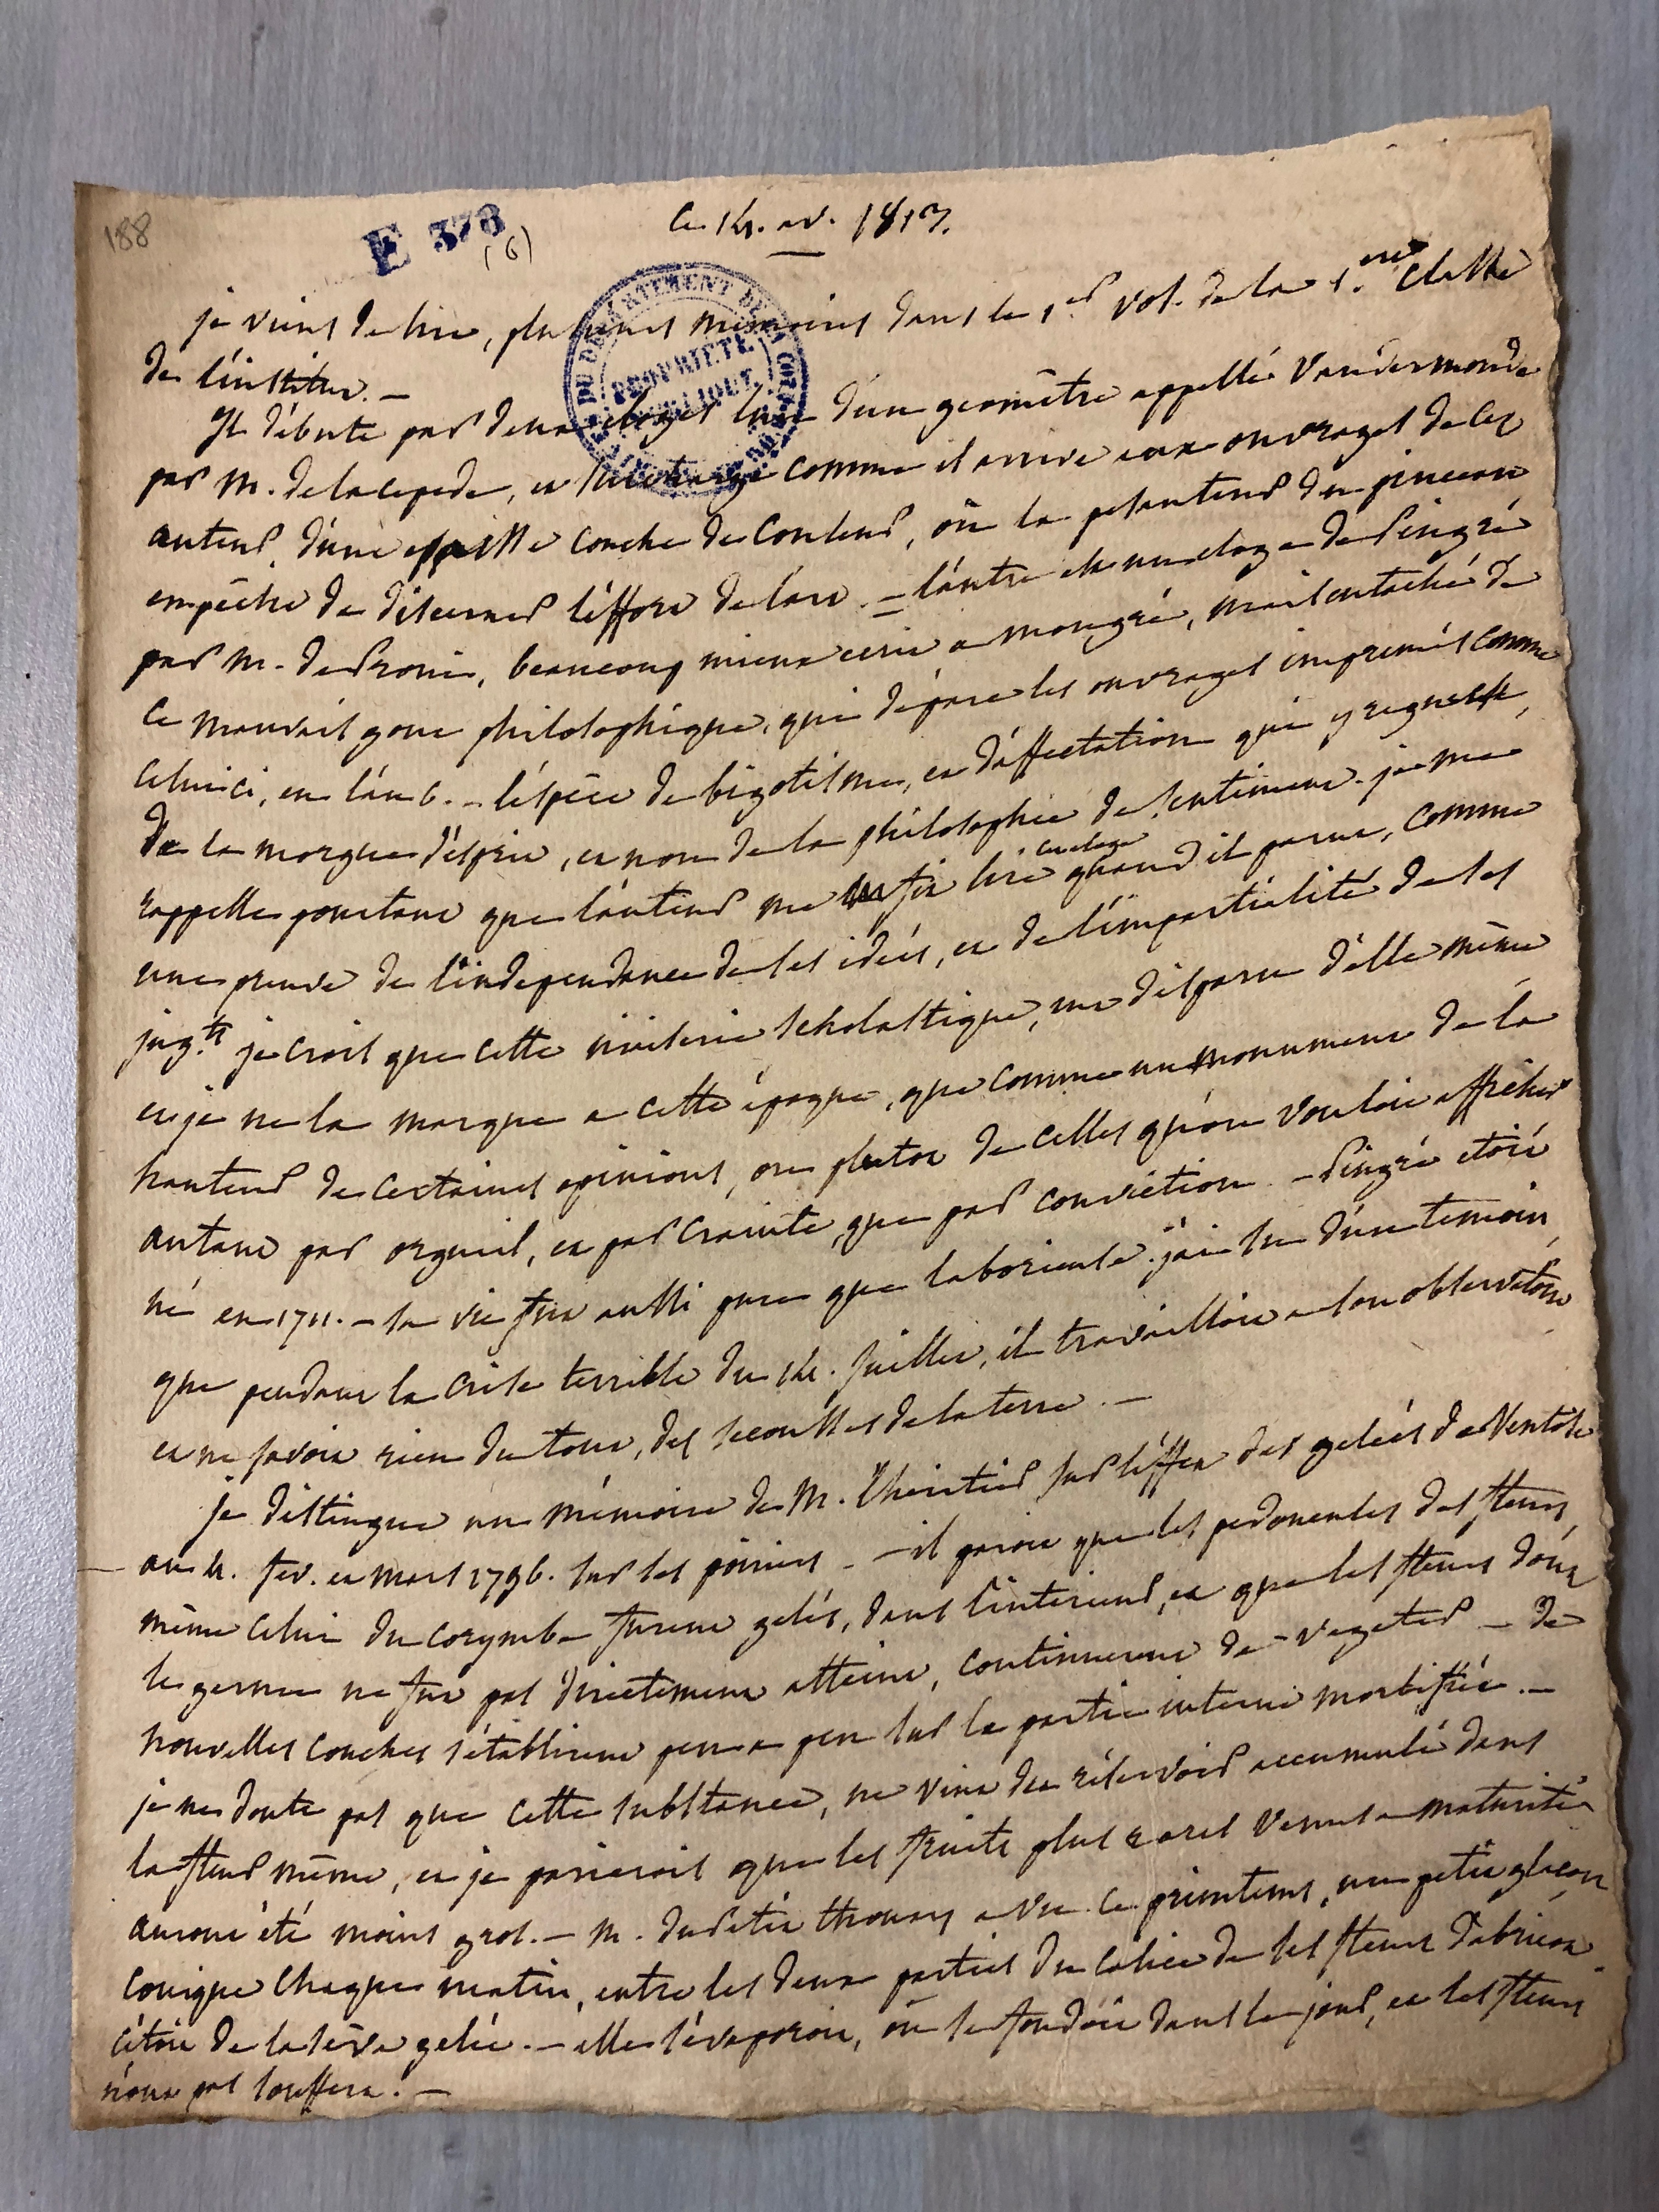 188
E 378
(6)
ce 14. av. 1813.
je viens de lire, plusieurs mémoires dans le 1.er vol. de la 1.ere classe
de l'institut. —
Il débute par deux eloges l'un d'un geomètre appellé Vandermonde
par M. de lacepede, et surchargé comme il arrive aux ouvrages de cet
auteur, d'une epaisse couche de couleur, où la pesanteur du pinceau
empêche de discerner l'effort de l'art. — l'autre est un eloge de Pingré
par M. de Prony, beaucoup mieux ecrit a mon gré, mais entaché de
ce mauvais gout philosophique, qui dépare les ouvrages imprimés comme
celui ci, en l'an 6. — l'éspèce de bigotisme, et d'affectation qui y regne est,
de la morgue d'ésprit, et non de la philosophie de sentiment. je me
rappelle pourtant que l'auteur me fit lire cet eloge quand il parut, comme
une preuve de l'independance de ses idées, et de l'impartialité de ses
jug.ts je crois que cette niaiserie scholastique, eut disparu d'elle même
et je ne la marque a cette époque, que comme un monument de la
hauteur de certaines opinions, ou plutot de celles qu'on vouloit afficher
autant par orgueil, et par crainte, que par conviction. — Pingré etoit
né en 1711. — sa vie fut aussi pure que laborieuse. j'ai su d'un temoin,
que pendant la crise terrible du 14. juillet, il travailloit a son observatoire
et ne savoit rien du tout, des secousses de la terre. —
je distingue un mémoire de M. Lheritier sur l'effet des gelées de Ventose
an 4. fev. et mars 1796. sur les poiriers — il paroit que les pedoncules des fleurs,
même celui du corymbe furent gelés, dans l'interieur, et que les fleurs dont
le germe ne fut pas directement atteint, continuerent de vegeter — de
nouvelles couches s'établirent peu a peu sur la partie interne mortifiée. —
je ne doute pas que cette substance, ne vint du réservoir accumulé dans
la fleur même, et je parierois que les fruits plus rares venus a maturité
auront été moins gros. — M. du Petit thouars a vu ce printems, un petit glaçon
conique chaque matin, entre les deux parties du calice de ses fleurs d'abricot
c'étoit de la sève gelée. — elle s'évaporoit, ou se fondoit dans le jour, et les fleurs
n'ont pas souffert. —